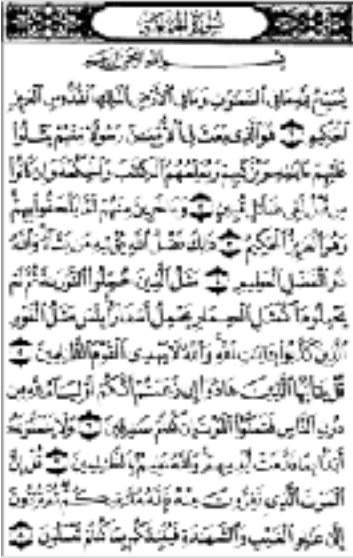 سورة الجمعة
بسم الله الرحمن الرحيم
يسبح لله ما في السموت وما في الأرض الملك القدوس العزيز
الحكيم ١ هو الذي بعث في الأمين رسولا منهم يتلوا
عليهم ءايته ويزكيهم ويعلمهم الكتب والحكمة وإن كانوا
من قبل لفي ضلل مبين ٢ وءاخرين منهم لما يلحقوا بهم
وهو العزيز الحكيم ٣ ذلك فضل الله يؤتيه من يشاء والله
ذو الفضل العظيم ٤ مثل الذين حملوا التورىة ثم لم
يحملوها كمثل الحمار يحمل أسفارا بئس مثل القوم
الذين كذبوا بءايت الله والله لا يهدي القوم الظلمين ٥
قل يأيها الذين هادوا إن زعمتم أنكم أولياء لله من
دون الناس فتمنوا الموت إن كنتم صدقين ٦ ولا يتمنونه
أبدا بما قدمت أيديهم والله عليم بالظلمين ٧ قل إن
الموت الذي تفرون منه فإنه ملقيكم ثم تردون
إلى علم الغيب والشهدة فينبئكم بما كنتم تعملون ٨